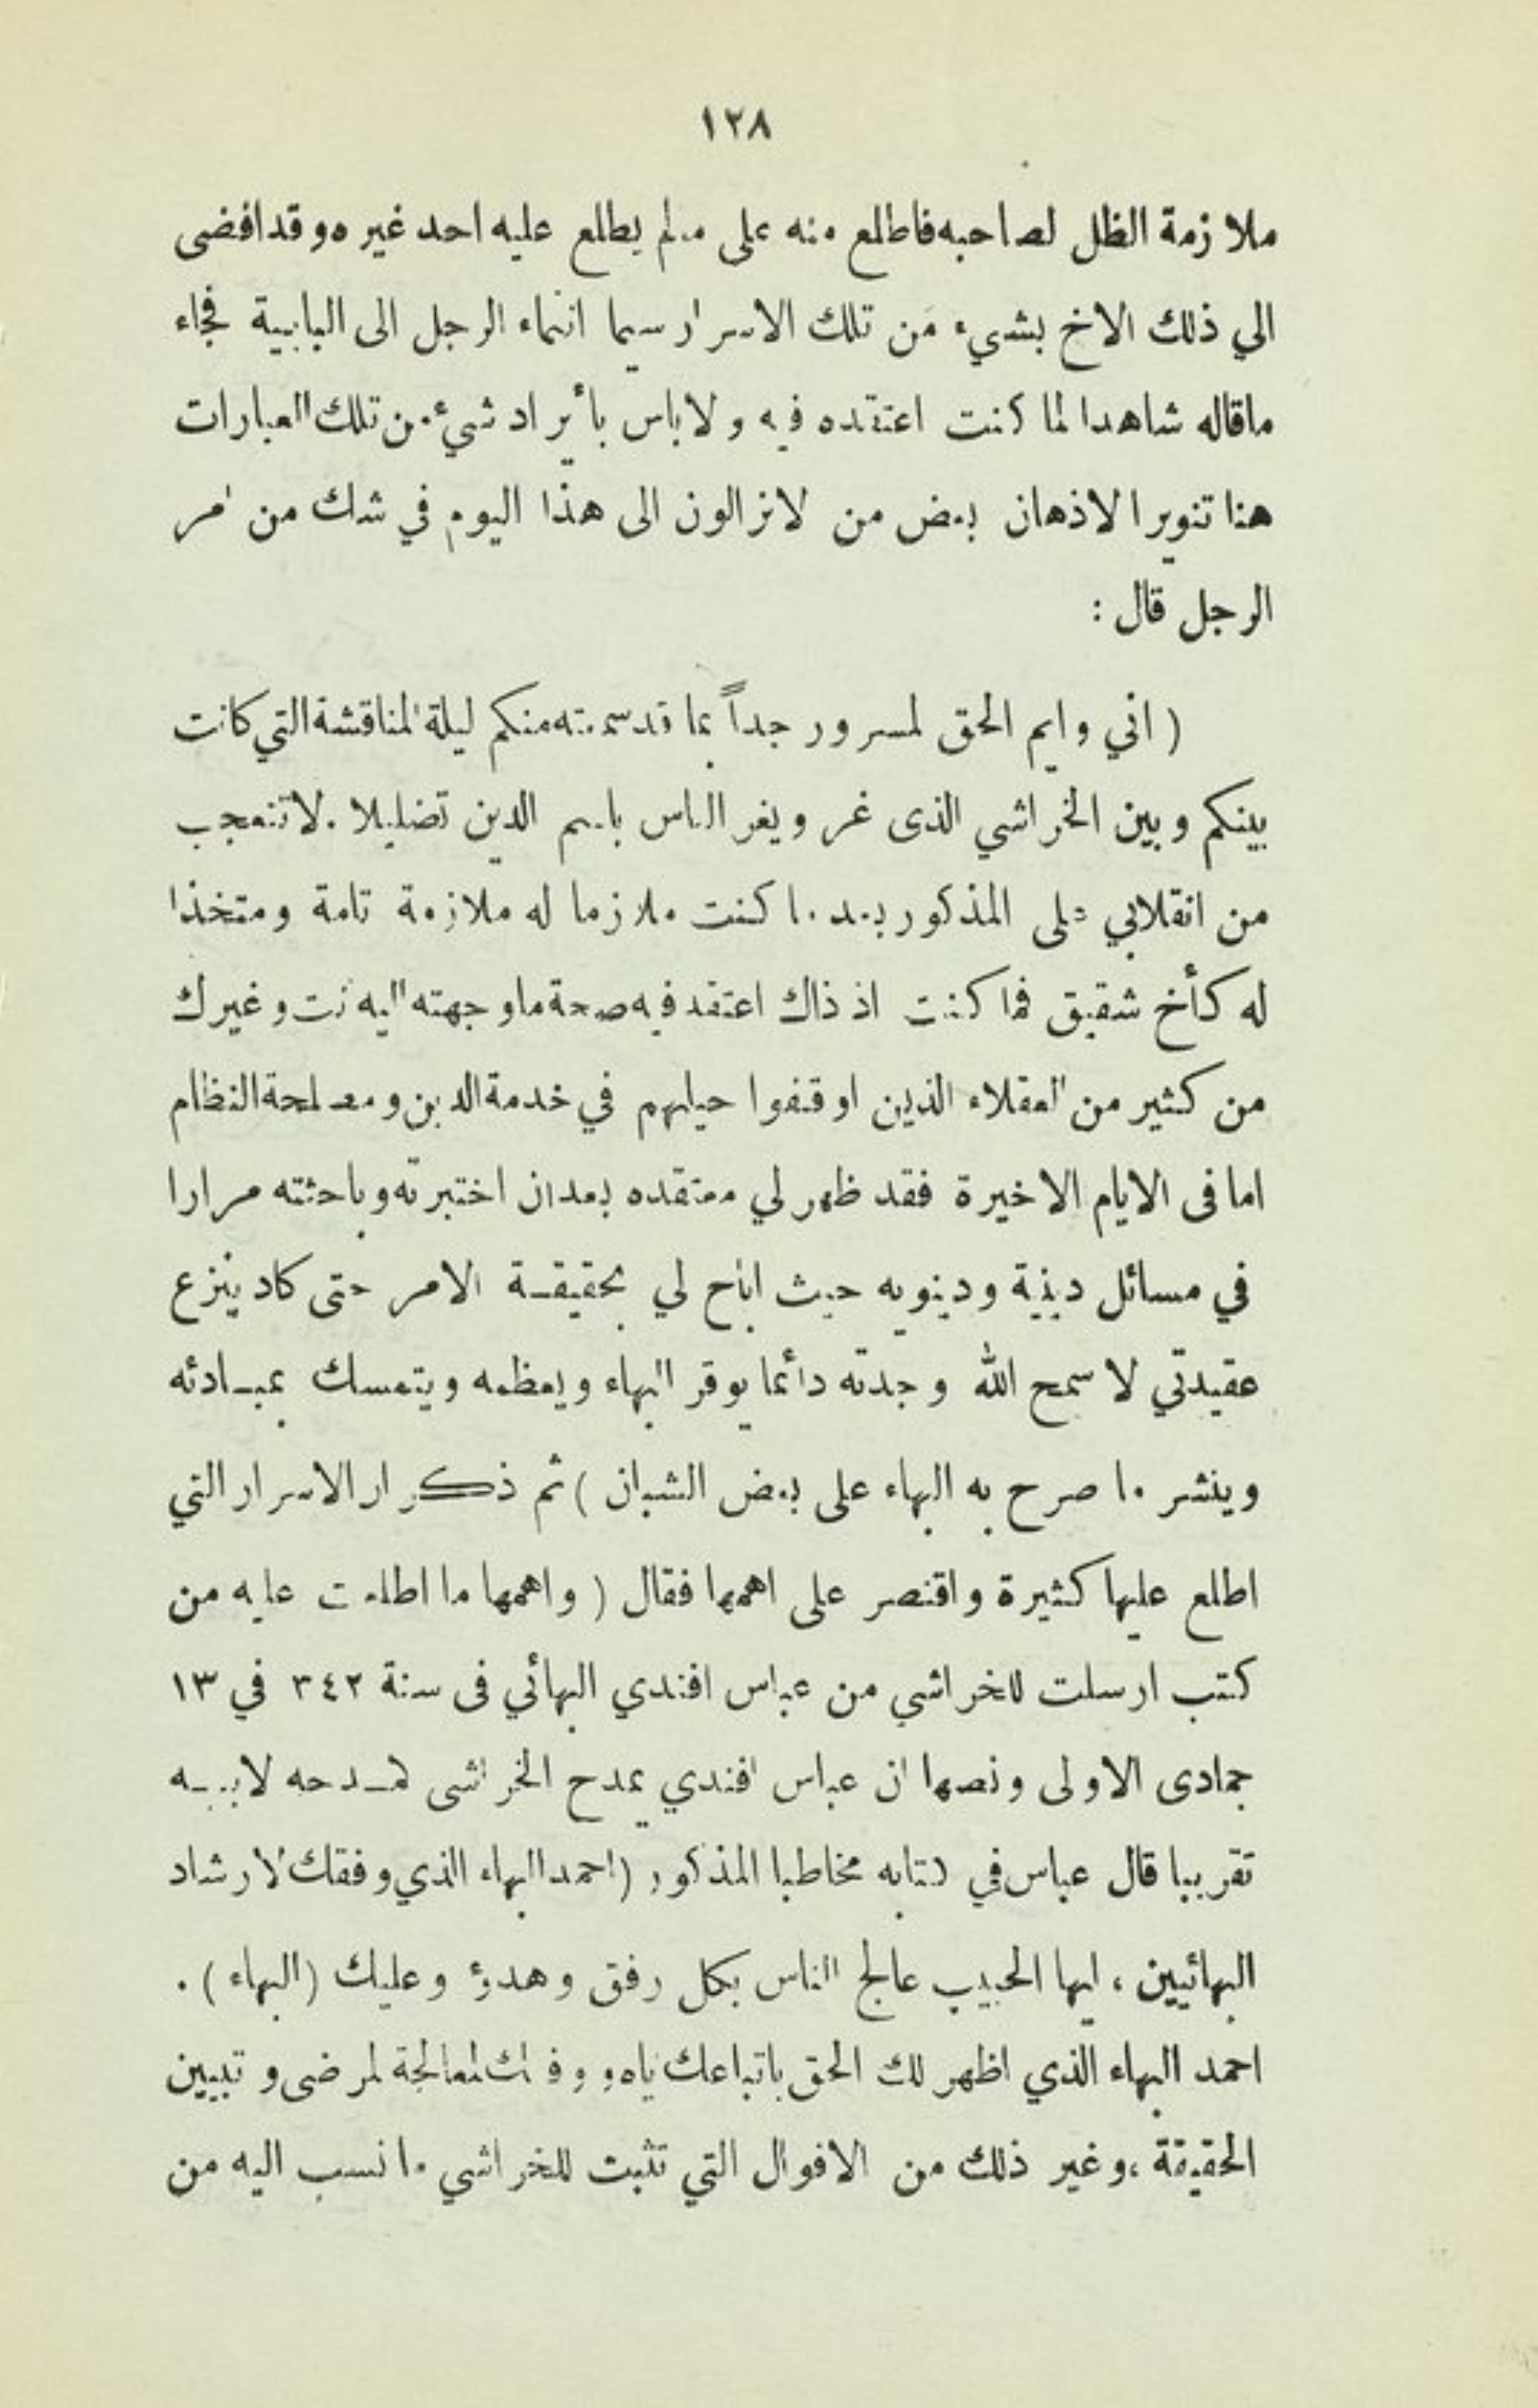 ١٢٨
ملازمة الظل لصاحبه فاطلع منه على مالم يطلع عليه احد غيره وقد افضى
الي ذلك الاخ بشيء من تلك الاسرار سيما انتماء الرجل الى البابية فجاء
ماقاله شاهدا لما كنت اعتقده فيه ولاباس بأيراد شيء من تلك العبارات
هنا تنويرا لاذهان بعض من لايزالون الى هذا اليوم في شك من امر
الرجل قال :
( اني وايم الحق لمسرور جداً بما قد سمعته منكم ليلة المناقشة التي كانت
بينكم وبين الخراشي الذى غر ويغر الناس باسم الدين تضليلا . لاتتعجب
من انقلابي على المذكور بعد ما كنت ملازما له ملازمة تامة ومتخذا
له كأخ شقيق فما كنت اذ ذاك اعتقد فيه صحة ماوجهته اليه انت وغيرك
من كثير من العقلاء الذين اوقفوا حياتهم في خدمة الدين ومصلحة النظام
اما فى الايام الاخيرة فقد ظهر لي معتقده بعد ان اختبرته وباحثته مرارا
في مسائل دينية ودينويه حيث اباح لي بحقيقة الامر حتى كاد ينزع
عقيدتي لا سمح الله وجدته دائما يوقر البهاء ويعظمه ويتمسك بمبادئه
وينشر ما صرح به البهاء على بعض الشبان ) ثم ذكر ان الاسرار التي
اطلع عليها كثيرة واقتصر على اهمها فقال ( واهمها ما اطلعت عليه من
كتب ارسلت للخراشي من عباس افندي البهائي فى سنة ٣٤٢ في ١٣
جمادى الاولى ونصها ان عباس افندي يمدح الخراشى كمدحه لابيه
تقريبا قال عباس في كتابه مخاطبا المذكور (احمد البهاء الذي وفقك لارشاد
البهائيين ، ايها الحبيب عالج الناس بكل رفق وهدؤ وعليك (البهاء ) .
احمد البهاء الذي اظهر لك الحق باتباعك اياه ووفقك لمعالجة المرضى وتبيين
الحقيقة ،وغير ذلك من الاقوال التي تثبت للخراشي ما نسب اليه من